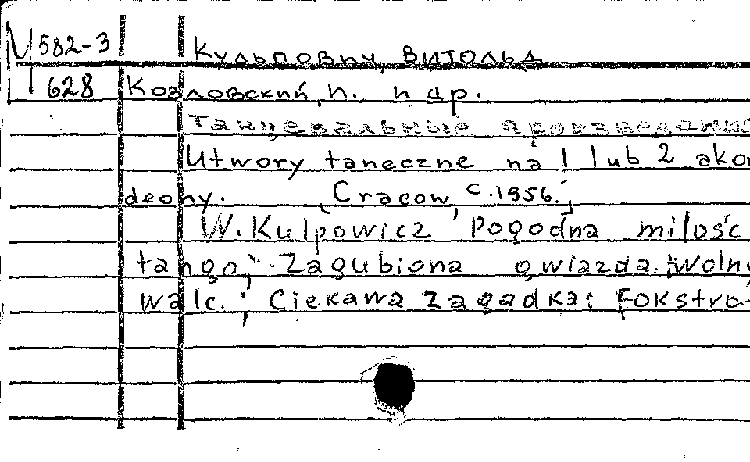 М 582-3 Кульпович, Витольд
628 Козловский, П. и др.
Танцевальные произведения
Utwory taneczne na 1 lub 2 akor
deony. [Cracow, c.1956.]
W. Kulpowicz Pogodna milośc
tango; Zagubiona gwiazda: Wolny
walc.; Ciekawa zagadka: Fokstro